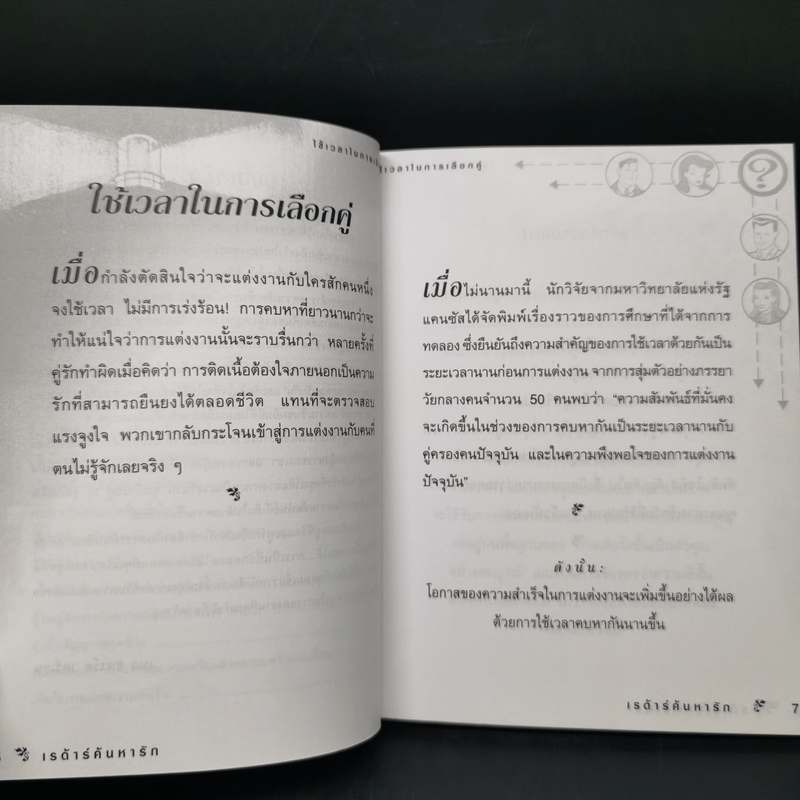 ใช้เวลาในการเลือกคู่
เมื่อกำลังตัดสินใจว่าจะแต่งงานกับใครสักคนหนึ่ง
จงใช้เวลา ไม่มีการเร่งร้อน! การคบหาที่ยาวนานกว่าจะ
ทำให้แน่ใจว่าการแต่งงานนั้นจะราบรื่นกว่า หลายครั้งที่
คู่รักทำผิดเมื่อคิดว่า การติดเนื้อต้องใจภายนอกเป็นความ
รักที่สามารถยืนยงได้ตลอดชีวิต แทนที่จะตรวจสอบ
แรงจูงใจ พวกเขากลับกระโจนเข้าสู่การแต่งงานกับคนที่
ตนไม่รู้จักเลยจริง ๆ
เรด้าร์ค้นหารัก
เวลาในการเลือกคู่
?
เมื่อไม่นานมานี้ นักวิจัยจากมหาวิทยาลัยแห่งรัฐ
แคนซัสได้จัดพิมพ์เรื่องราวของการศึกษาที่ได้จากการ
ทดลอง ซึ่งยืนยันถึงความสำคัญของการใช้เวลาด้วยกันเป็น
ระยะเวลานานก่อนการแต่งงาน จากการสุ่มตัวอย่างภรรยา
วัยกลางคนจำนวน 50 คนพบว่า “ความสัมพันธ์ที่มั่นคง
จะเกิดขึ้นในช่วงของการคบหากันเป็นระยะเวลานานกับ
คู่ครองคนปัจจุบัน และในความพึงพอใจของการแต่งงาน
ปัจจุบัน”
ดังนั้น:
โอกาสของความสำเร็จในการแต่งงานจะเพิ่มขึ้นอย่างได้ผล
ด้วยการใช้เวลาคบหากันนานขึ้น
เรด้าร์ค้นหารัก 7